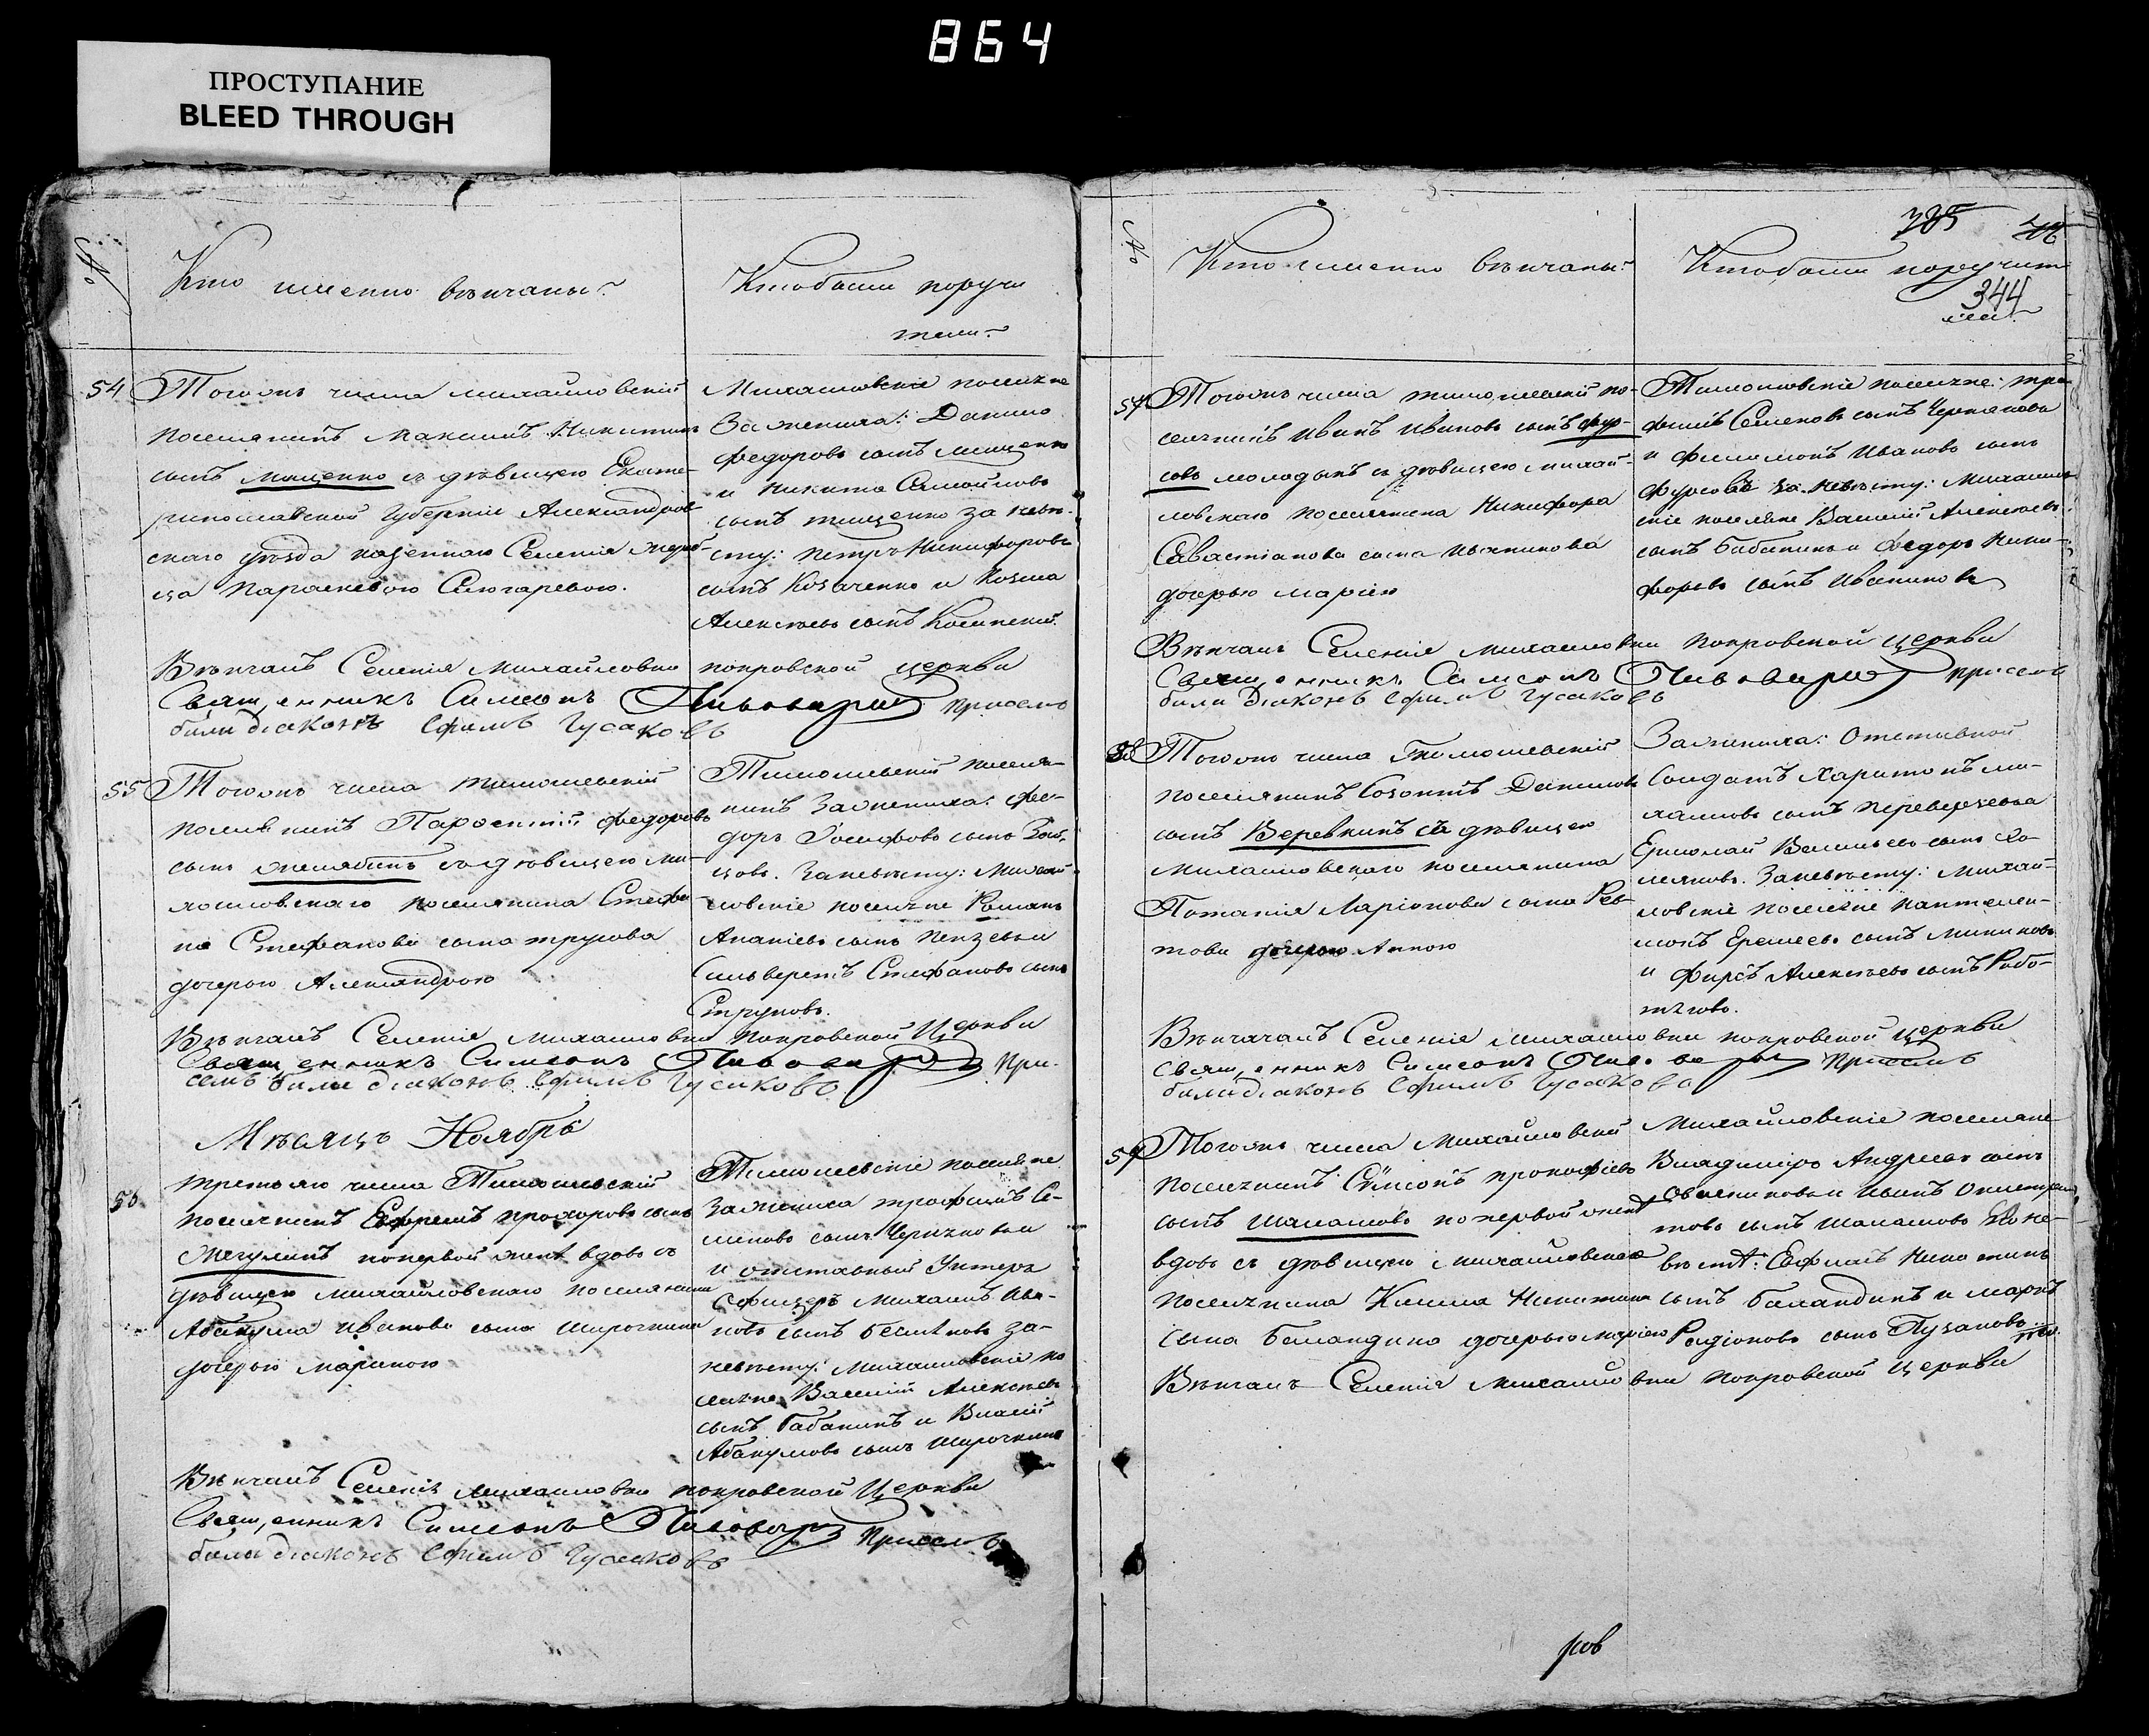 864
ПРОСТУПАНИЕ
BLEED THROUGH
№
Кто именно венчаны?
Кто были поручи
тели?
54
Тогожъ числа михайловскій
поселянинъ Максимъ Никитинъ
сынъ мищенко съ девицею Екате-
ринославской Губерніи Александров
скаго уезда казеннаго Селенія жереб-
ца Параскевою Слюгаревою.
Михайловскіе поселяне
За жениха: Данило
федоровъ сынъ мищенко
и Никита Самойловъ
сынъ тищенко за невѣ-
сту: Петръ Никифоровъ
сынъ Козаченко и Козма
Алексѣевъ сынъ
Вѣнчалъ Селенія михайловки покровской церкви
Священникъ Симеонъ Пивоваров При семъ
были діаконъ Ефимъ Гусаковъ
55
Тогожъ числа тимошевскій
поселянинъ Парфентій федоровъ
сынъ жилябинъ съ девицею ми-
хайловскаго поселянина Стефа-
на Стефанова сына трусова
дочерью Александрою
Тимошевскій поселя-
нинъ За жениха: фе-
доръ Іосифовъ сынъ
цовъ. За невѣсту: Михай-
ловскіе поселяне Романъ
Ананіевъ сынъ Пензевъ и
Сильверстъ Стефановъ сынъ
Струковъ.
Вѣнчалъ Селенія михайловки покровской Церкви
Священникъ Симеонъ Пивоваров При
семъ были діаконъ Ефимъ Гусаковъ
Мѣсяцъ Ноябрь
56
третьяго числа Тимошевскій
поселянинъ Ефремъ прохоровъ сынъ
Жегулинъ по первой женѣ вдовъ съ
девицею михайловскаго поселянина
Абакума иванова сына широчкина
дочерью Мариною
Тимошевскіе поселяне
За жениха трофимъ Се-
меновъ сынъ Черняковъ и
и отставный Унтеръ
Офицеръ Михаилъ Ива-
новъ сынъ за-
невѣсту: Михайловскіе по
селяне Василій Алексѣевъ
сынъ бабакинъ и Власій
Абакумовъ сынъ Широчкинъ
Вѣнчалъ Селенія михайловки покровской Церкви
Священникъ Симеонъ Пивоваров При семъ
были діаконъ Ефимъ Гусаковъ
№
Кто именно венчаны?
Кто были поручит
ели?
344
57
Тогожъ числа тимошевскій по-
селянинъ иванъ ивановъ сынъ фур-
совъ молодыкъ съ девицею михай-
ловскаго поселянина Никифора
Савастіанова сына иваникова
дочерью маріею
Тимошевскіе поселяне: тро-
фимъ Семеновъ сынъ Черняковъ
и филимонъ ивановъ сынъ
фурсовъ за невѣсту: Михайлов
скіе поселяне Василій Алексѣевъ
сынъ бабакинъ и федоръ Ники-
форовъ сынъ иваниковъ
Вѣнчалъ Селенія михайловки покровской церкви
Священникъ Симеонъ Пивоваров при семъ
были діаконъ Ефимъ Гусаковъ
58
Тогожъ числа Тимошевскій
поселянинъ Созонтъ Даниловъ
сынъ Веревкинъ съ девицею
михайловскаго поселянина
Потапія Ларіонова сына Рев-
това дочерью Анною
За жениха: Отставной
Солдатъ Харитонъ ми-
хайловъ сынъ переверзевъ и
Ермолай Васильевъ сынъ хо-
меяковъ. За невѣсту: михай-
ловскіе поселяне пантелей-
монъ Еремеевъ сынъ мининовъ
и фирсъ Алексѣевъ сынъ Рабо-
тяговъ.
Вѣнчалъ Селенія михайловки покровской церкви
Священникъ Симеонъ Пивоваров при семъ
были діаконъ Ефимъ Гусаковъ
59
Тогожъ числа Михайловскій
поселянинъ Симонъ прокофіевъ
сынъ шалашовъ по первой женѣ
вдовъ съ девицею михайловскаго
поселянина Клима Никитина
сына баландина дочерью маріею
Михайловскіе поселяне
Владиміръ Андреевъ сынъ
Овчениковъ и иванъ
товъ сынъ шалашовъ по не-
вѣстѣ: Ефимъ Никитинъ
сынъ баландинъ и маркъ
Радіоновъ сынъ Пузановъ
Вѣнчалъ Селенія михайловки покровской церкви
ров